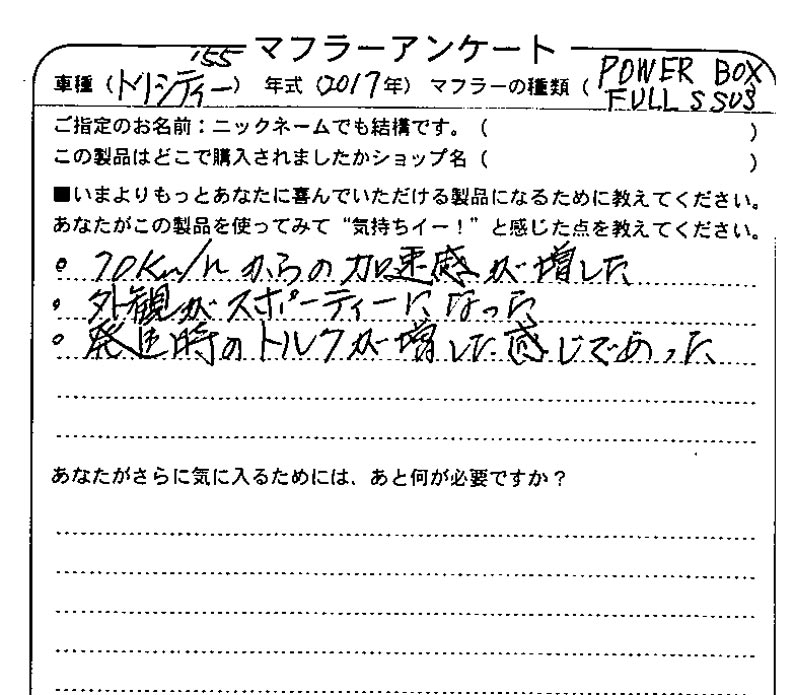 マフラーアンケート
'155
車種（トリシティー） 年式（2017年） マフラーの種類（POWER BOX
FULL S SUS
ご指定のお名前：ニックネームでも結構です。（ ）
この製品はどこで購入されましたかショップ名（ ）
■いまよりもっとあなたに喜んでいただける製品になるために教えてください。
あなたがこの製品を使ってみて“気持ちイー！”と感じた点を教えてください。
・70Km/hからの加速感が増した
・外観がスポーティーになった
・発進時のトルクが増した感じであった
あなたがさらに気に入るためには、あと何が必要ですか？